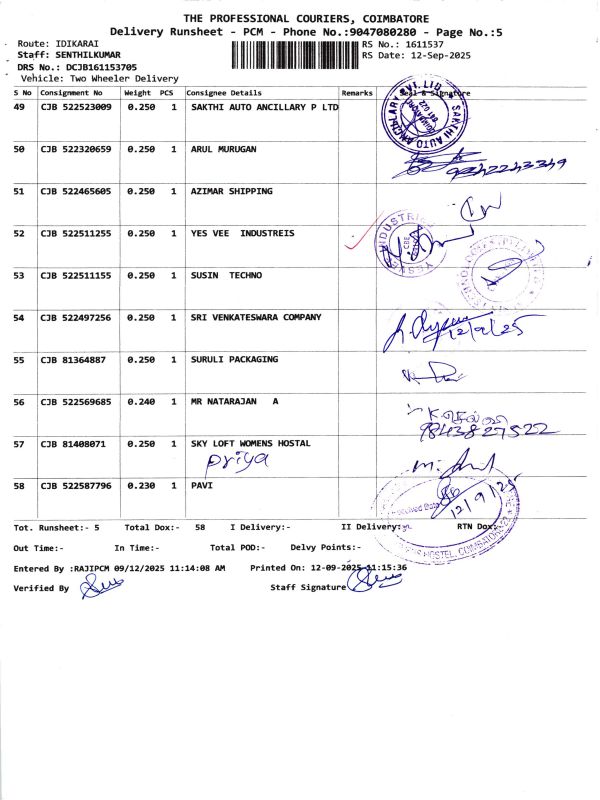 THE PROFESSIONAL COURIERS, COIMBATORE
Delivery Runsheet - PCM - Phone No.:9047080280 - Page No.:5
Route: IDIKARAI
RS No.: 1611537
Staff: SENTHILKUMAR
RS Date: 12-Sep-2025
DRS No.: DCJB161153705
Vehicle: Two Wheeler Delivery
S No Consignment No Weight PCS Consignee Details Remarks Seal & Signature
49 CJB 522523009 0.250 1 SAKTHI AUTO ANCILLARY P LTD
SAKTHI AUTO ANCILLARY PVT. LTD.
50 CJB 522320659 0.250 1 ARUL MURUGAN
51 CJB 522465605 0.250 1 AZIMAR SHIPPING
52 CJB 522511255 0.250 1 YES VEE INDUSTREIS
53 CJB 522511155 0.250 1 SUSIN TECHNO
54 CJB 522497256 0.250 1 SRI VENKATESWARA COMPANY
12/9/25
55 CJB 81364887 0.250 1 SURULI PACKAGING
56 CJB 522569685 0.240 1 MR NATARAJAN A
9843827522
57 CJB 81408071 0.250 1 SKY LOFT WOMENS HOSTAL
priya
58 CJB 522587796 0.230 1 PAVI
12/9/25
HOSTEL, COIMBATORE
Tot. Runsheet:- 5 Total Dox:- 58 I Delivery:- II Delivery:- RTN Dox:-
Out Time:- In Time:- Total POD:- Delvy Points:-
Entered By :RAJIPCM 09/12/2025 11:14:08 AM Printed On: 12-09-2025 11:15:36
Verified By Staff Signature